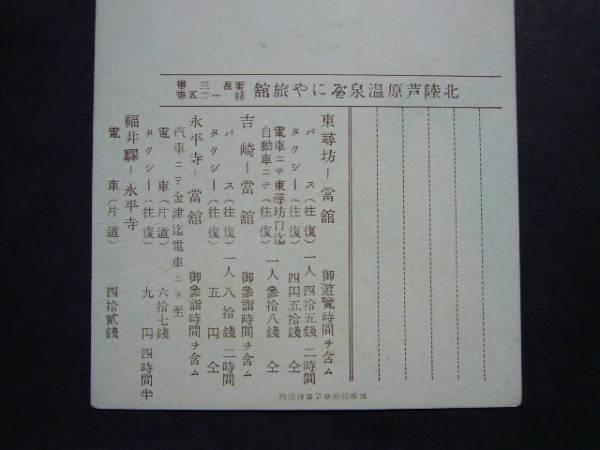 北陸芦原温泉べにや旅館
電話 長一二五番
三番
東尋坊ー當館 御遊覽時間ヲ含ム
バス(往復)一人四拾五錢 二時間
タクシー(往復) 四円五拾錢 仝
電車ニテ東尋坊口迄
自動車ニテ(往復) 一人參拾八錢 仝
吉崎ー當館 御參詣時間ヲ含ム
バス(往復)一人八拾錢 二時間
タクシー(往復) 五円 仝
永平寺ー當館 御參詣時間ヲ含ム
汽車ニテ金津迄電車ニテ至
電車(片道) 六拾七錢
タクシー(往復) 九円 四時間半
福井驛ー永平寺
電車(片道) 四拾貳錢